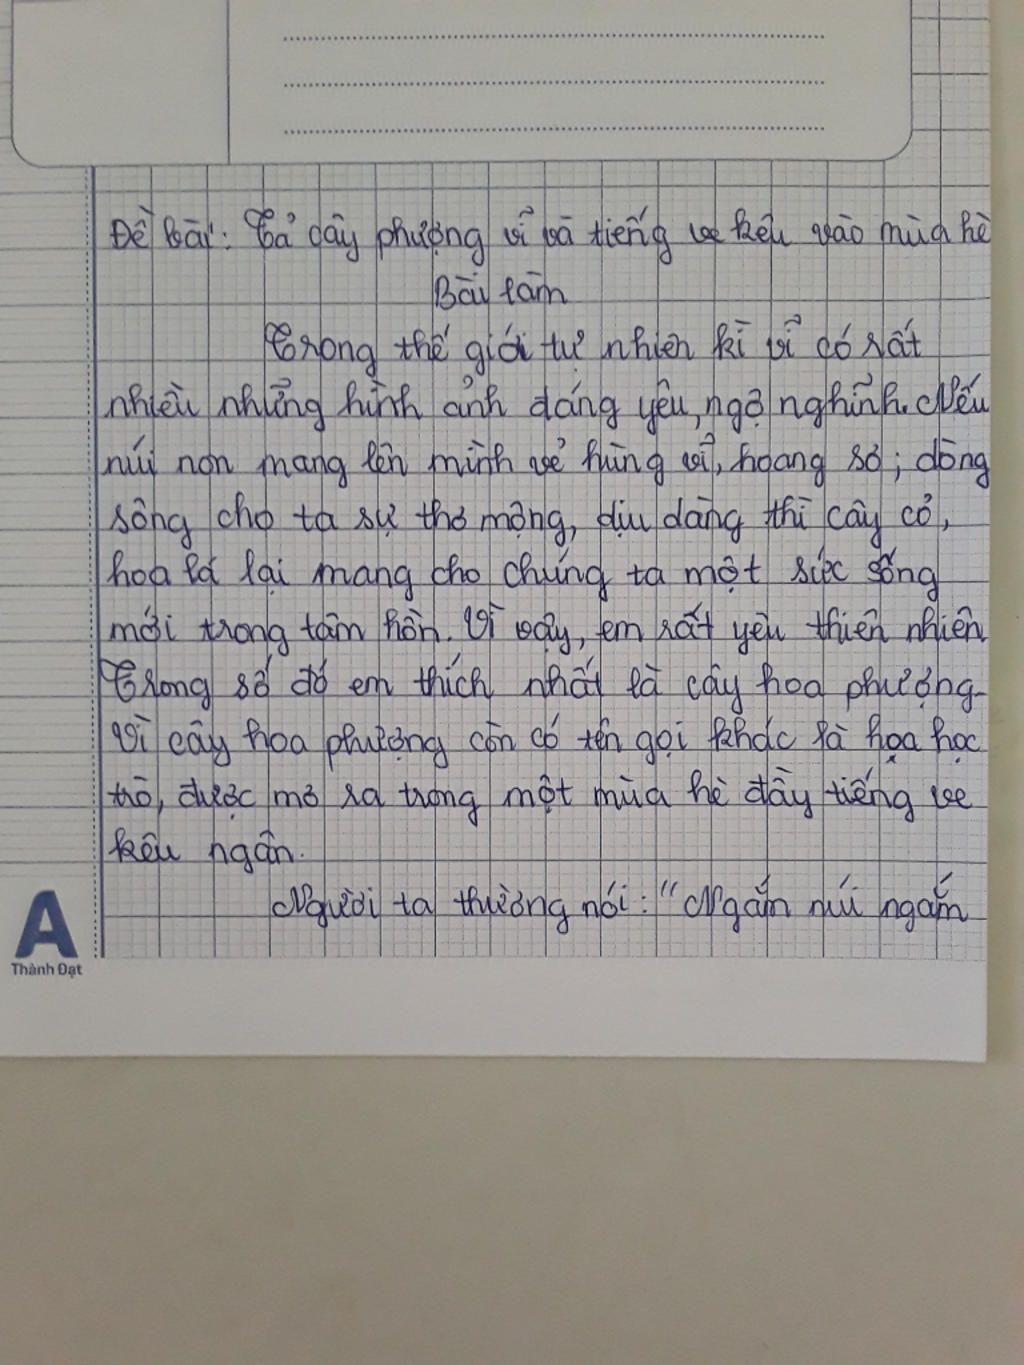 Đề bài: Tả cây phượng vĩ và tiếng ve kêu vào mùa hè
Bài làm
Trong thế giới tự nhiên kì vĩ có rất
nhiều những hình ảnh đáng yêu, ngộ nghĩnh. Nếu
núi non mang lên mình vẻ hùng vĩ, hoang sơ; dòng
sông cho ta sự thơ mộng, dịu dàng thì cây cỏ,
hoa lá lại mang cho chúng ta một sức sống
mới trong tâm hồn. Vì vậy, em rất yêu thiên nhiên.
Trong số đó em thích nhất là cây hoa phượng.
Vì cây hoa phượng còn có tên gọi khác là họa học
trò, được mở ra trong một mùa hè đầy tiếng ve
kêu ngân.
Người ta thường nói: "Ngắm núi ngắm
A
Thành Đạt